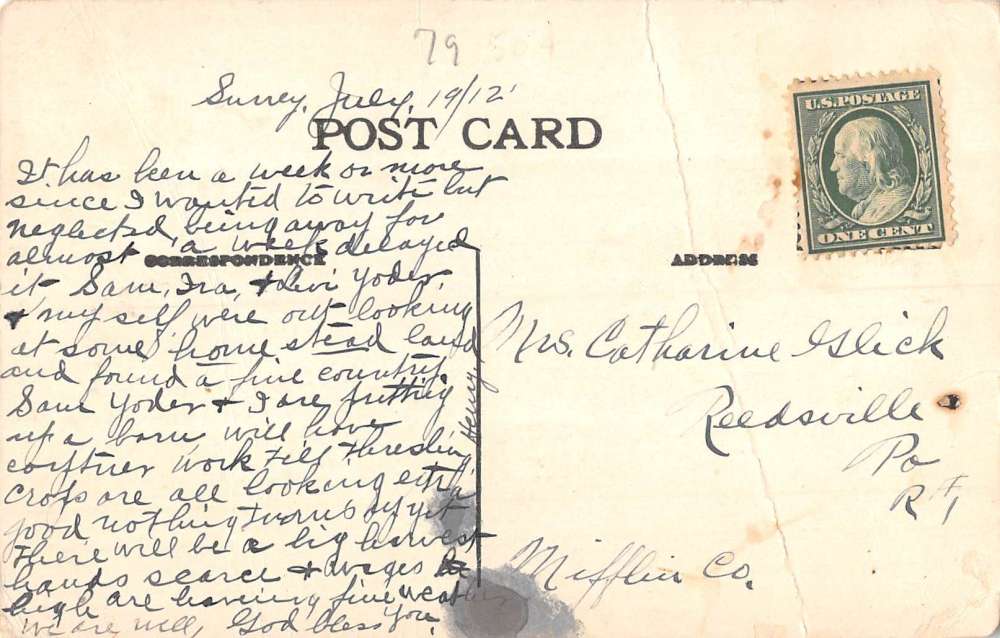 79 504
Surrey, July, 19/12
POST CARD
U.S. POSTAGE
ONE CENT
It has been a week or more
since I wanted to write but
neglected, being away for
almost a week delayed
CORRESPONDENCE
ADDRESS
it Sam, Ira, & Levi Yoder
& my self were out looking
at some home stead land
and found a fine country.
Sam Yoder & I are putting
up a barn will have
work till threshing
crops are all looking extra
good nothing yet
there will be a big harvest
hands scarce & wages
high are having fine weather
we are well, God bless you.
Henry.
Mrs. Catharine Glick
Reedsville
Pa
R #1
Mifflin Co.